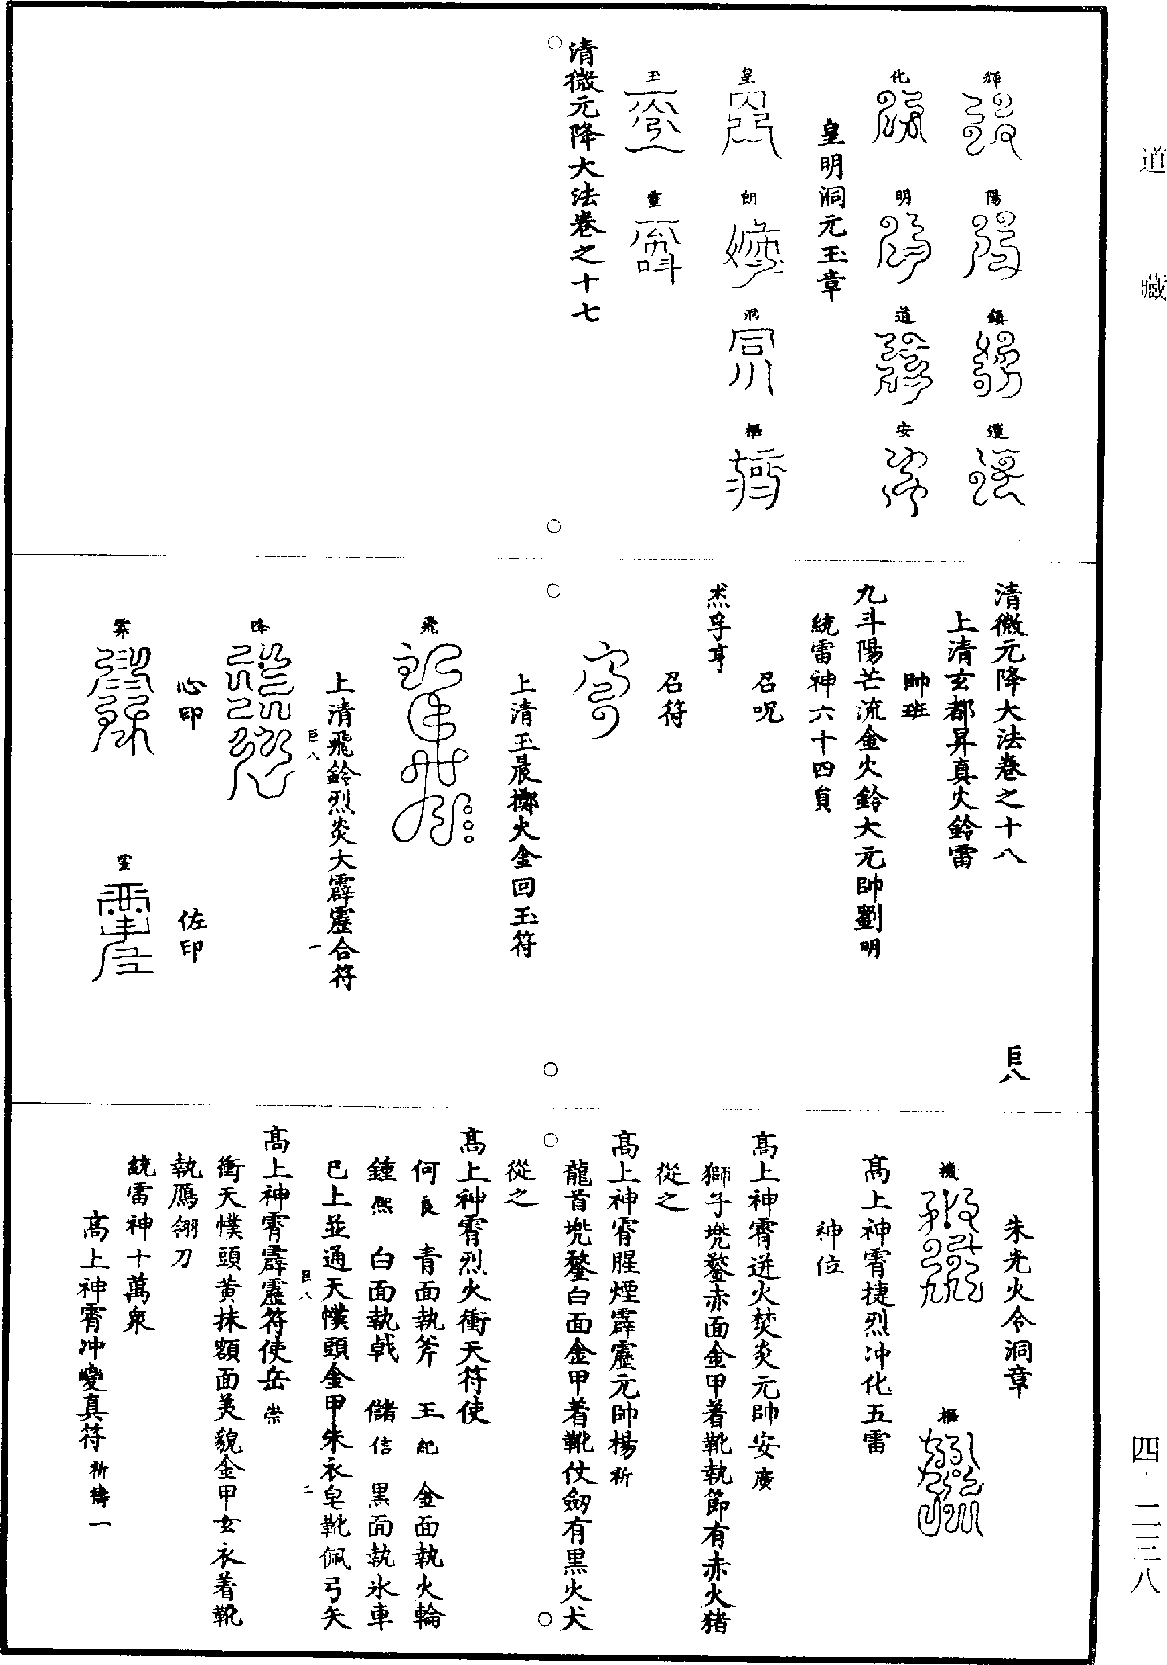 道藏
四·二三八
輝 陽 鎮 燿
化 明 道 安
皇明洞元玉章
皇 朗 飛 樞
玉 靈
清微元降大法卷之十七
清微元降大法卷之十八 巨八
上清玄都昇真火鈴雷
帥班
九斗陽芒流金火鈴大元帥劉明
統雷神六十四員
召呪
㶡孚亨
召符
上清玉晨擲火金回玉符
飛
上清飛鈴烈炎大霹靂合符
巨八 一
降
心印 佐印
霹 靈
朱光火令洞章
機 樞
高上神霄捷烈冲化五雷
神位
高上神霄迸火焚炎元帥安廣
獅子兠鍪赤面金甲著靴執節有赤火猪
從之
高上神霄腥煙霹靂元帥楊祈
龍首兠鍪白面金甲着靴仗劒有黑火犬
從之
高上神霄烈火衝天符使
何良 青面執斧 王紀 金面執火輪
鍾熙 白面執戟 儲信 黑面執氷車
巳上並通天幞頭金甲朱衣皂靴佩弓矢
巨八 二
高上神霄霹靂符使岳崇
衝天幞頭黄抹額面美貌金甲玄衣着靴
執鴈翎刀
統雷神十萬衆
高上神霄冲變真符祈禱一